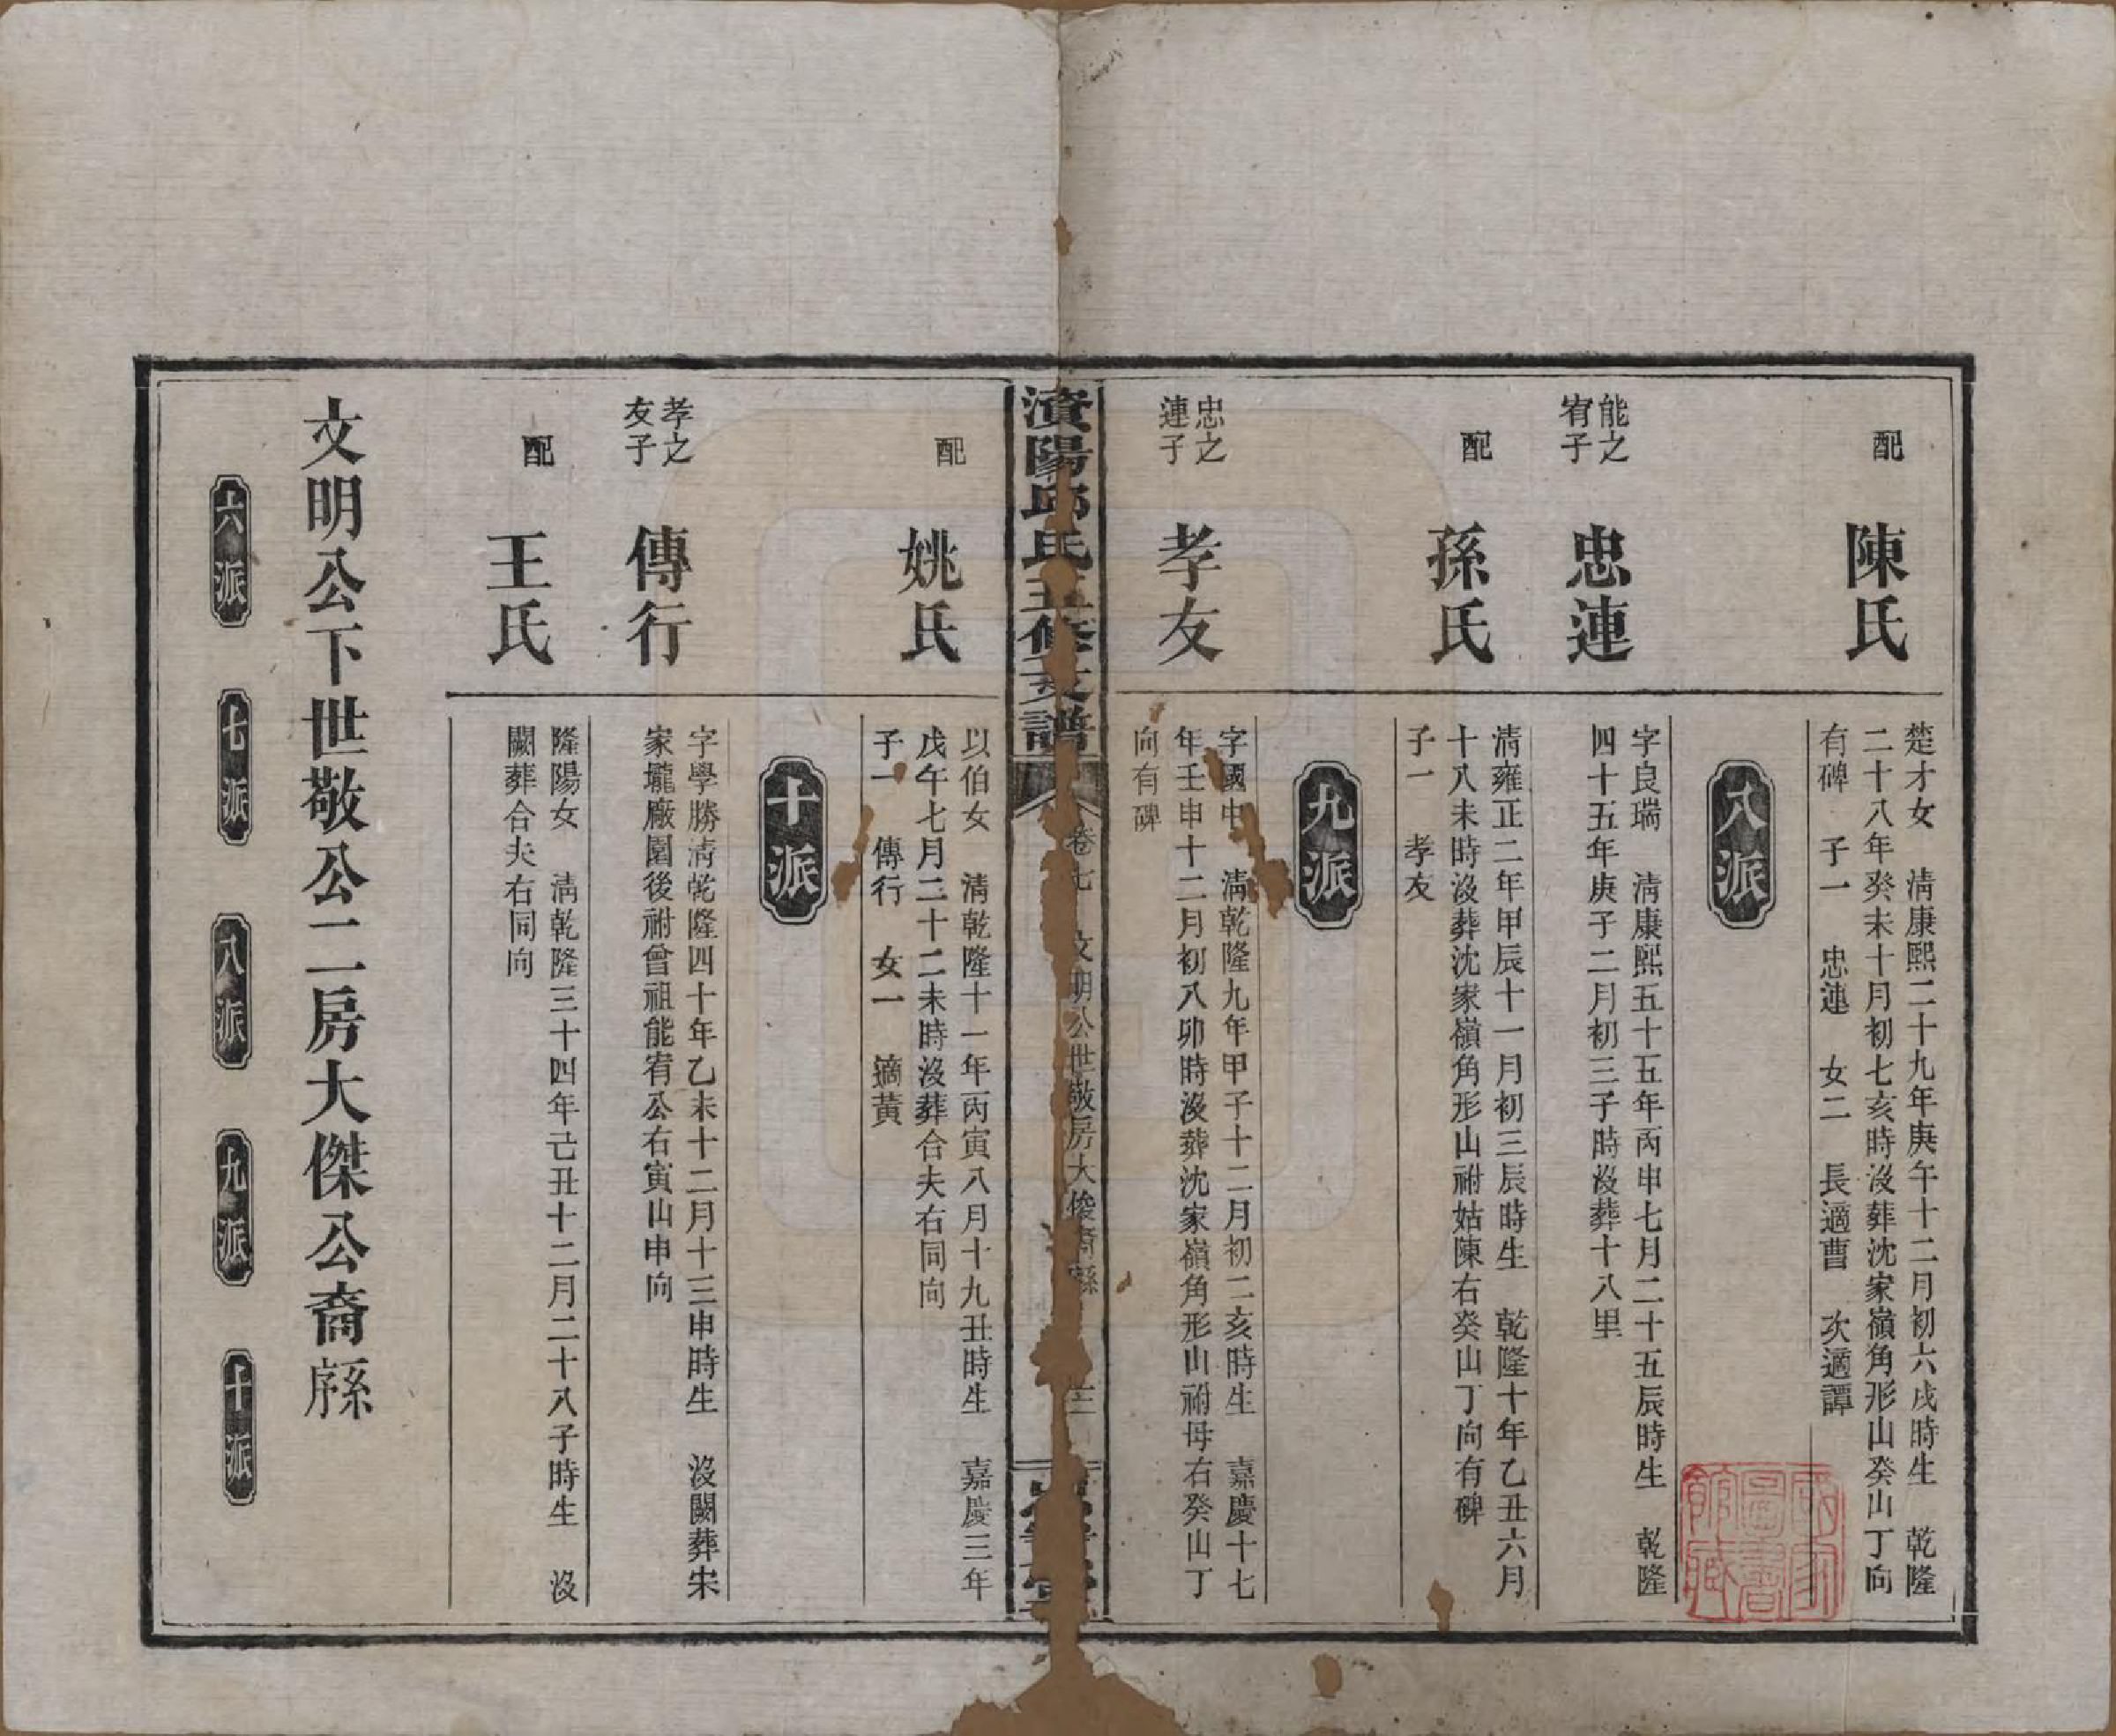 配
陳氏
楚才女　清康熙二十九年庚午十二月初六戌時生　乾隆
二十八年癸未十月初七亥時沒葬沈家嶺角形山癸山丁向
有碑　子一　忠連　女二　長適曹　次適譚
八派
能之
宥子
忠連
字良瑞　清康熙五十五年丙申七月二十五辰時生　乾隆
四十五年庚子二月初三子時沒葬十八里
配
孫氏
清雍正二年甲辰十一月初三辰時生　乾隆十年乙丑六月
十八未時沒葬沈家嶺角形山祔姑陳右癸山丁向有碑
子一　孝友
九派
忠之
連子
孝友
字國申　清乾隆九年甲子十二月初二亥時生　嘉慶十七
年壬申十二月初八卯時沒葬沈家嶺角形山祔母右癸山丁
向有碑
濱陽邱氏五修支譜
卷七　文明公世敬房大俊裔
三
配
姚氏
以伯女　清乾隆十一年丙寅八月十九丑時生　嘉慶三年
戊午七月二十二未時沒葬合夫右同向
子一　傳行　女一　適黃
十派
孝之
友子
傳行
字學勝清乾隆四十年乙未十二月十三申時生　沒闕葬朱
家壠廠園後祔曾祖能宥公右寅山申向
配
王氏
隆陽女　清乾隆三十四年己丑十二月二十八子時生　沒
闕葬合夫右同向
文明公下世敬公二房大傑公裔
六派　七派　八派　九派　十派